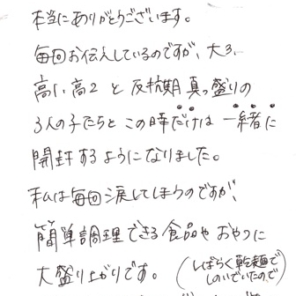 本当にありがとうございます。
毎回お伝えしているのですが、大3、
高1、高2 と 反抗期 真っ盛りの
3人の子たちと この時だけは 一緒に
開封するようになりました。
私は毎回涙してしまうのですが、
簡単調理できる食品や おやつに
大盛り上がりです。(しばらく乾麺で
しのいでいたので)